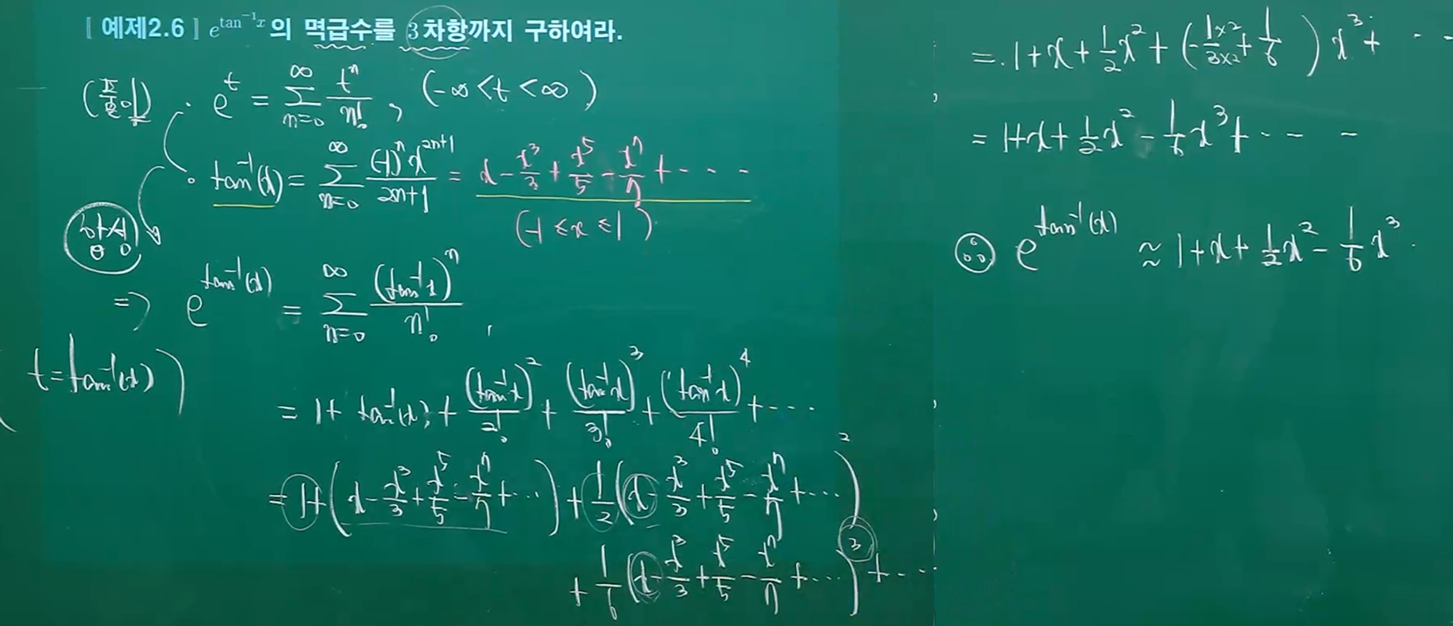 [예제2.6] e^{tan^{-1}x}의 멱급수를 3차항까지 구하여라.
(풀이) · e^t = \sum_{n=0}^{∞} \frac{t^n}{n!}, (-∞<t<∞)
· tan^{-1}(x) = \sum_{n=0}^{∞} \frac{(-1)^n x^{2n+1}}{2n+1} = x - \frac{x^3}{3} + \frac{x^5}{5} - \frac{x^7}{7} + ····
(-1≤x≤1)
합성
⇒ e^{tan^{-1}(x)} = \sum_{n=0}^{∞} \frac{(tan^{-1}x)^n}{n!}
(t=tan^{-1}(x))
= 1+ tan^{-1}(x) + \frac{(tan^{-1}x)^2}{2!} + \frac{(tan^{-1}x)^3}{3!} + \frac{(tan^{-1}x)^4}{4!} + ····
= 1+(x - \frac{x^3}{3} + \frac{x^5}{5} - \frac{x^7}{7} + ···) + \frac{1}{2}(x - \frac{x^3}{3} + \frac{x^5}{5} - \frac{x^7}{7} + ···)^2
+ \frac{1}{6}(x - \frac{x^3}{3} + \frac{x^5}{5} - \frac{x^7}{7} + ···)^3 + ···
= 1+x+\frac{1}{2}x^2+(-\frac{1×2}{3×2}+\frac{1}{6})x^3+ ··
= 1+x+\frac{1}{2}x^2-\frac{1}{6}x^3+ ····
∴ e^{tan^{-1}(x)} ≈ 1+x+\frac{1}{2}x^2-\frac{1}{6}x^3.